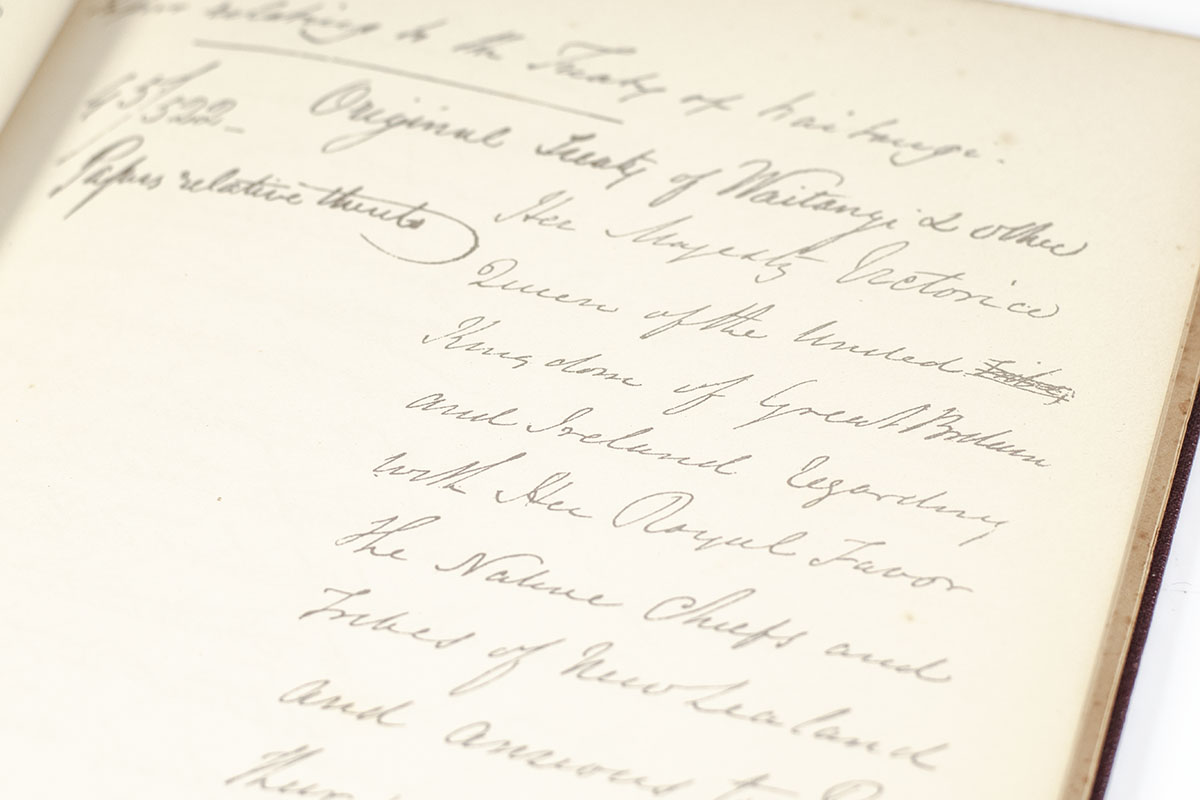 relating to the Treaty of Waitangi.
45/522- Original Treaty of Waitangi & other
Papers relative thereto
Her Majesty Victoria
Queen of the United
Kingdom of Great Britain
and Ireland regarding
with Her Royal Favor
the Native Chiefs and
Tribes of New Zealand
and anxious to